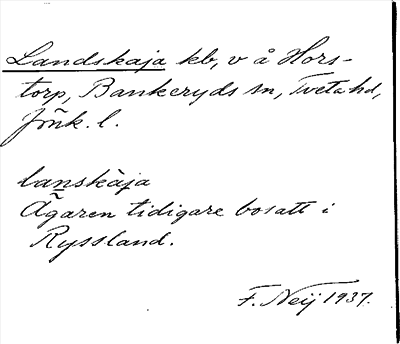 Landskaja kb, v å Hors-
torp, Bankeryds sn, Tveta hd,
Jönk. l.
lanskàja
Ägaren tidigare bosatt i
Ryssland.
F. Neij 1937.